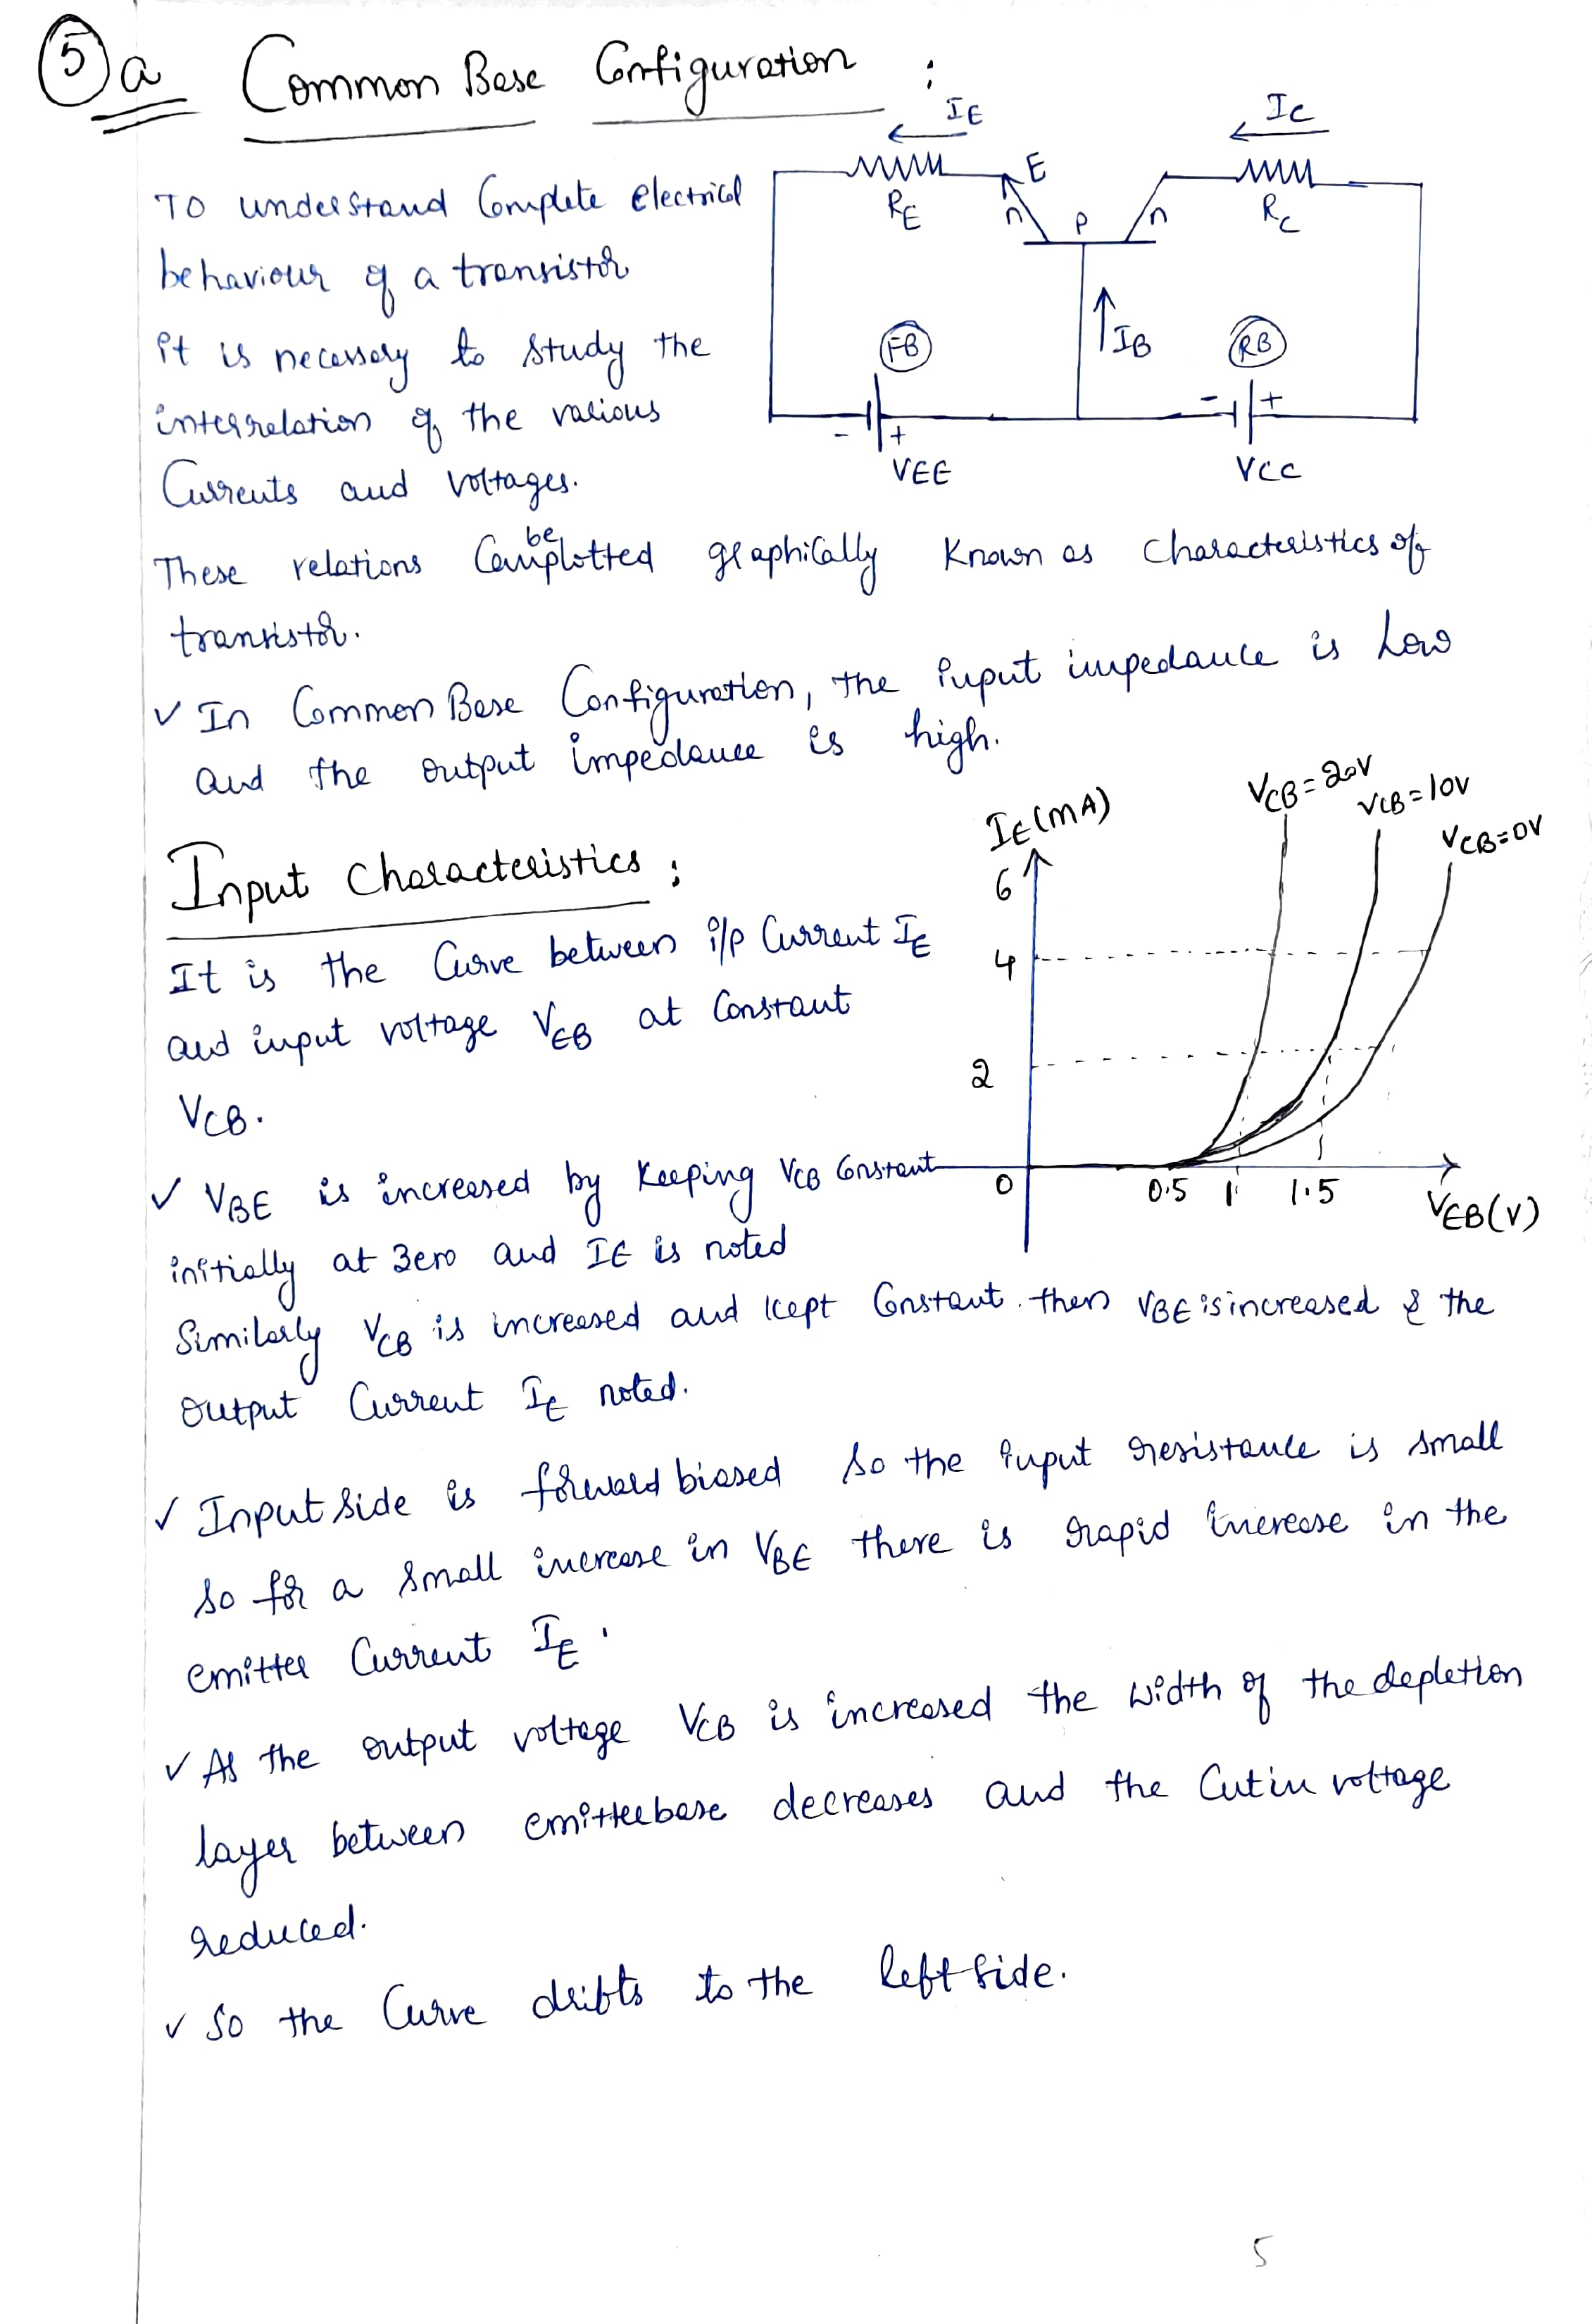 5 a Common Base Configuration :
IE
IC
RE
E
n
P
n
RC
To understand Complete electrical
behaviour of a transistor
it is necessary to study the
interrelation of the various
Currents and voltages.
FB
IB
RB
- +
VEE
- +
VCC
be
These relations Can plotted graphically Known as Characteristics of
transistor.
✓ In Common Base Configuration, the input impedance is Low
and the output impedance is high.
Input Characteristics :
It is the Curve between i/p Current IE
and input voltage VEB at Constant
VCB.
IE(mA)
6
4
2
0
0.5 1 1.5
VEB(V)
VCB=20V
VCB=10V
VCB=0V
✓ VBE is increased by Keeping VCB Constant
initially at zero and IE is noted
Similarly VCB is increased and kept Constant. then VBE is increased & the
output Current IE noted.
✓ Input side is forward biased so the input resistance is small
so for a small increase in VBE there is rapid increase in the
emitter Current IE.
✓ As the output voltage VCB is increased the width of the depletion
layer between emitterbase decreases and the Cutin voltage
reduced.
✓ So the Curve drifts to the left side.
5